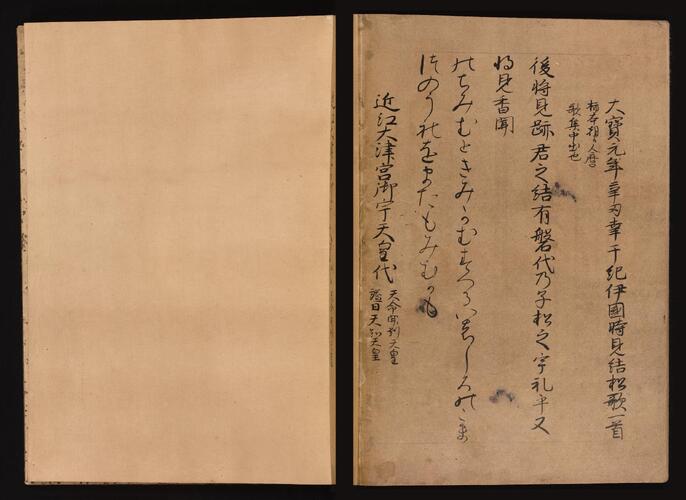 大寶元年辛丑幸于紀伊國時見結松歌一首
柿本朝臣人麿
歌集中出也
後將見跡君之結有磐代乃子松之宇礼乎又
将見香聞
のちみむときみかむすへるいはしろのこま
つのうれをまたもみむかも
近江大津宮御宇天皇代
天命開別天皇
謚曰天智天皇